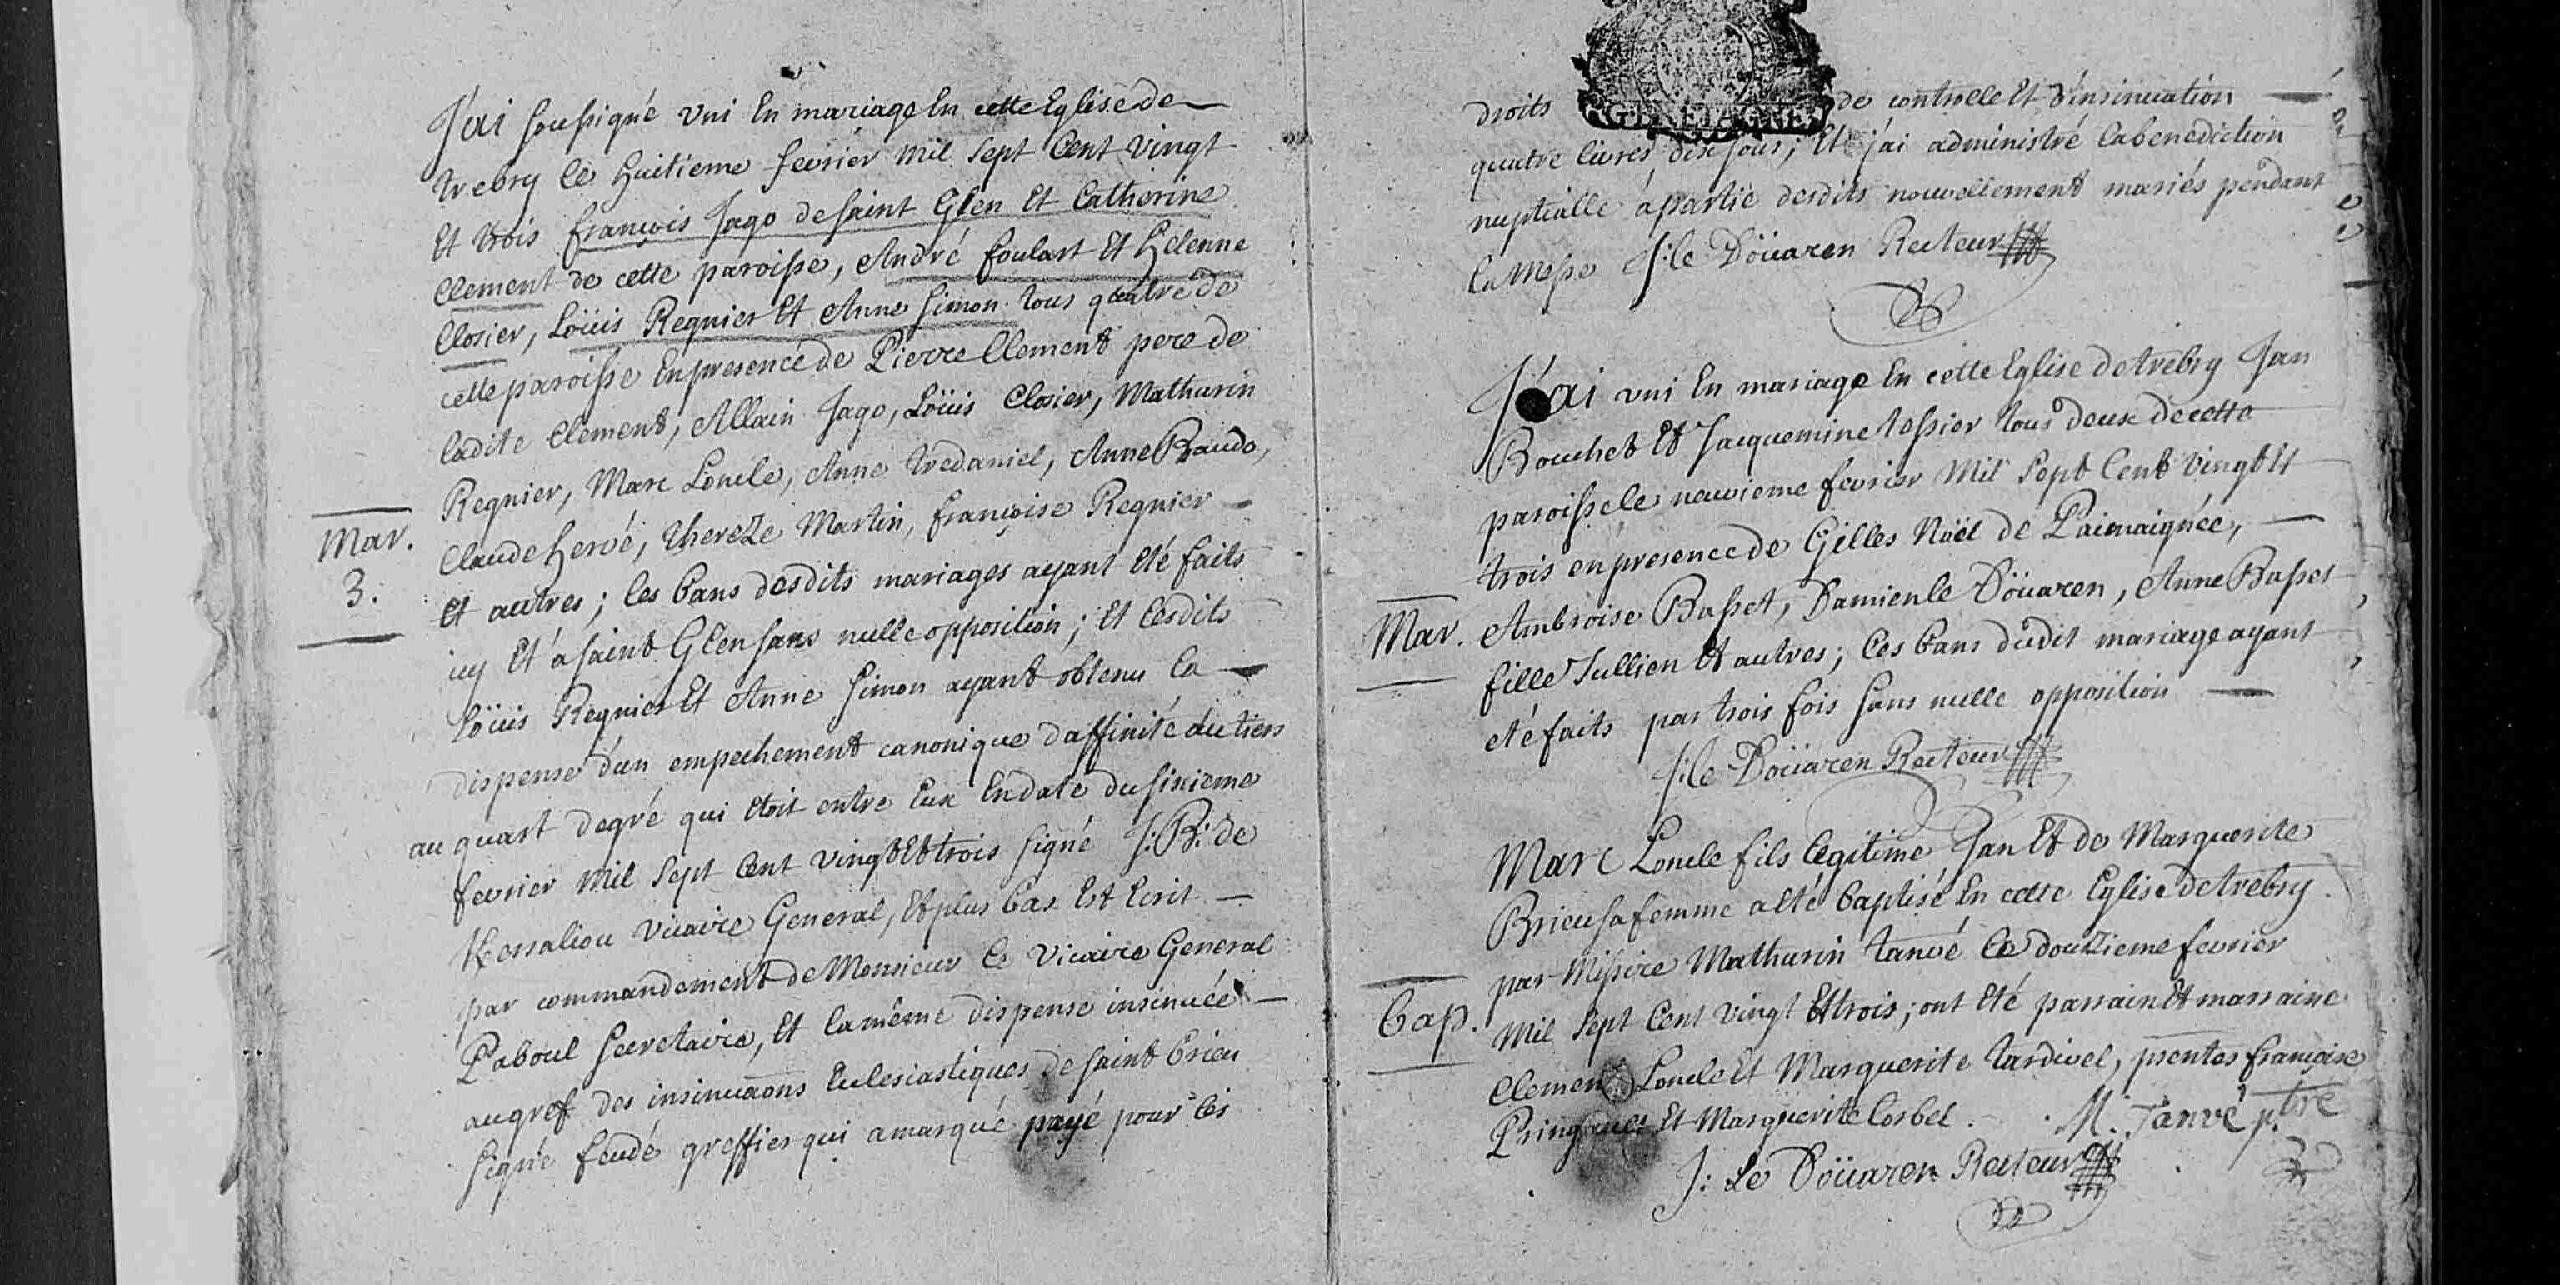 J'ai soussigné uni En mariage En cette Eglise de
trebry le huitieme fevrier mil sept Cent vingt
Et trois françois Jago de saint Glen Et Catherine
Clement de cette paroisse, André foulart Et helenne
Closier, Loüis Regnier Et Anne Simon tous quatre de
cette paroisse En presence de Pierre Clement pere de
ladite Clement, Allain Jago, Loüis Closier, Mathurin
Regnier, Marc Loncle, Anne tredaniel, Anne Baudo,
Mar.
3.
Claude hervé, thereze Martin, françoise Regnier
Et autres; les bans desdits mariages ayant été faits
icy Et a saint Glen sans nulle opposition; et lesdits
Loüis Regnier Et Anne Simon ayant obtenu la
dispense d'un empechement canonique d'affinité du tiers
au quart degré qui etoit entre Eux En date du sixieme
fevrier mil sept Cent vingt Et trois signé J: B: de
Kersaliou vicaire General, Et plus bas Est Ecrit
par commandement de Monsieur le vicaire General
Paboul Secretaire, Et la méme dispense insinuée
au gref des insinuaons Ecclesiastiques de saint brieu
signé feudé greffier qui a marqué payé pour les
droits de controlle Et d'insinuation
GENE TAGNE
quatre livres dix sous; Et j'ai administré la benediction
nuptialle á partie desdits nouvellement mariés pendant
la Messe J: le Döüaren Recteur
J'ai uni En mariage En cette Eglise de trebry Jan
Bouchet Et Jacquemine tessier tous deux de cette
paroisse le neuvieme fevrier Mil Sept Cent vingt Et
trois en presence de Gilles Noël de
Mar.
Ambroise Basset, Damien le Döüaren, Anne Basset
fille Jullien Et autres; les bans dudit mariage ayant
eté faits par trois fois sans nulle opposition
J: le Döüaren Recteur
Marc Loncle fils legitime Jan Et de Marguerite
Brieu sa femme a eté baptisé En cette Eglise de trebry
par Missire Mathurin tanvé le douzieme fevrier
Bap.
Mil Sept Cent vingt Et trois; ont été parrain Et marraine
Clement Loncle Et Marguerite tardivel, pñtes françoise
Et Marguerite Corbel. M. Tanvé p.tre
J: Le Döüaren Recteur